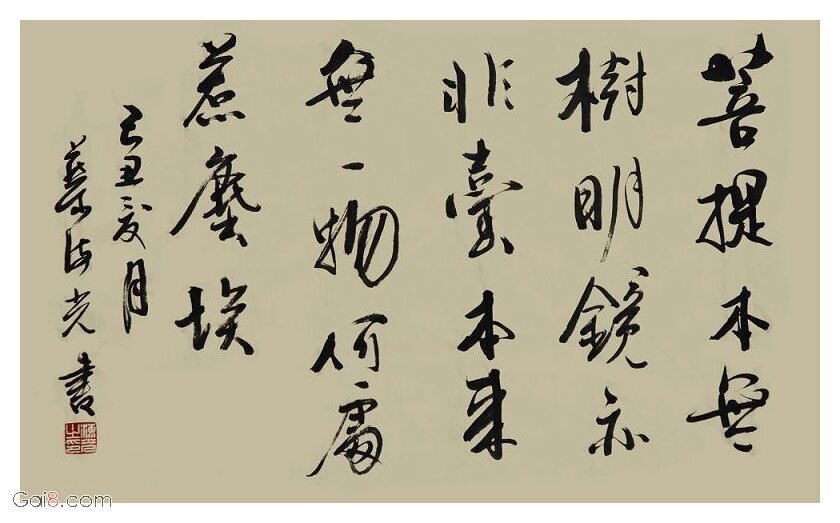 菩提本無
樹明鏡亦
非臺本来
無一物何處
惹塵埃
己丑夏月
光書
Gai8.com